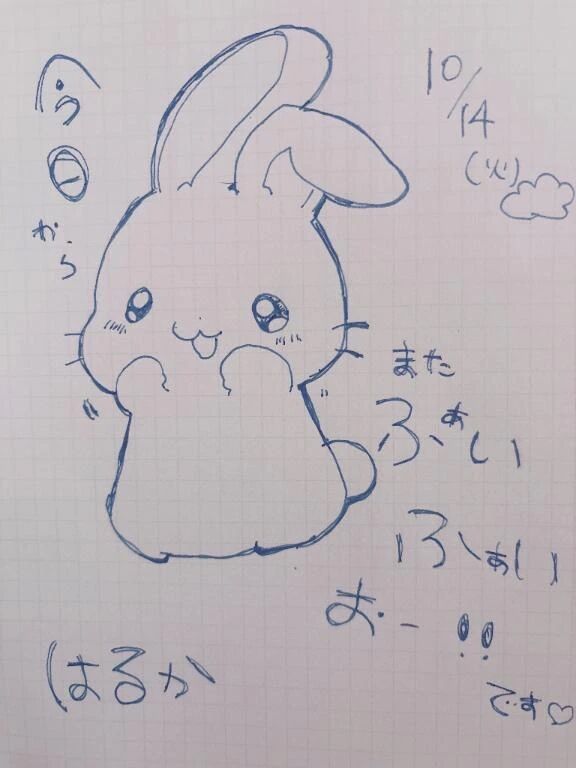 10/14
(火)
今日
から
また
ふぁい
ふぁい
おー!!
です♡
はるか